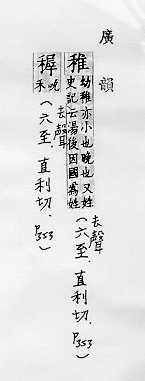 廣韻
稚幼稚亦小也晚也又姓
史記云湯後因國為姓
去聲(六至.直利切.P353)
稺晚禾
去聲(六至.直利切.P353)